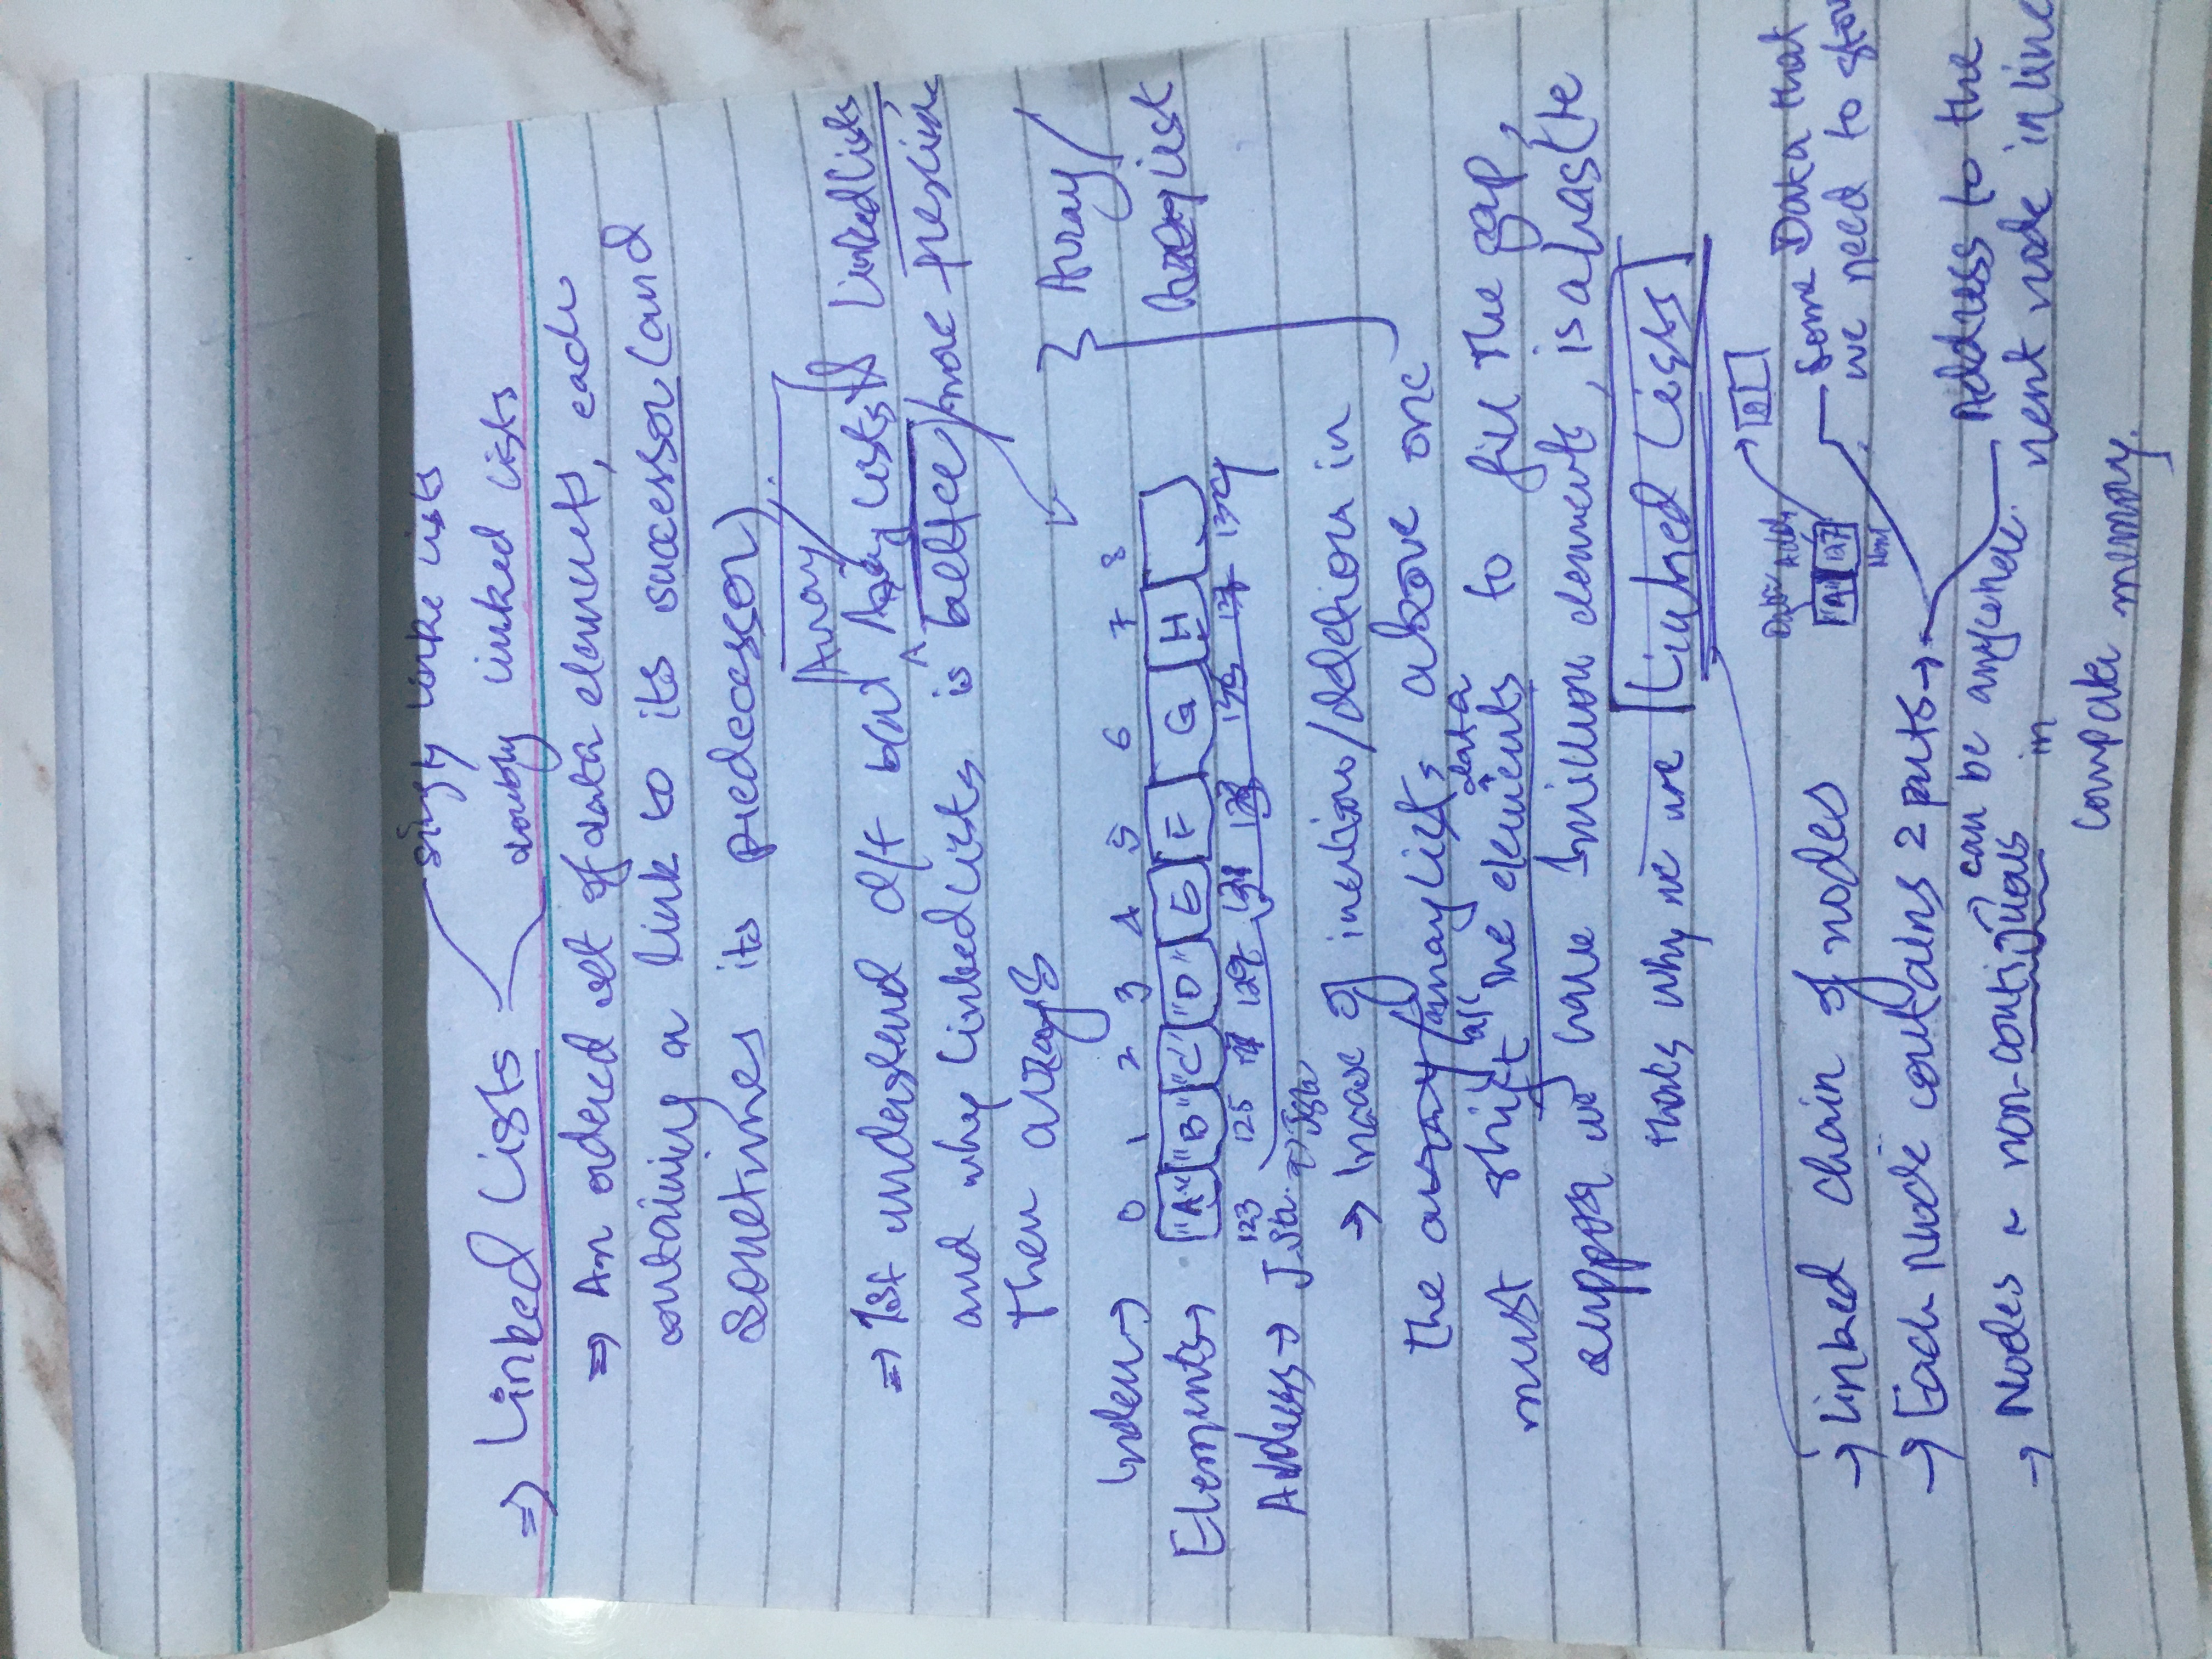 singly linke lists
⇒ Linked Lists
doubly linked lists
⇒ An ordered set of data elements, each
containing a link to its successor (and
sometimes its predecessor).
Array/
⇒ 1st understand d/f b/w Array Lists & Linked Lists
and why Linked Lists is better/more
then arrays
Index → 0 1 2 3 4 5 6 7 8
Array/
Elements → "A" "B" "C" "D" E F G H
Array List
123 125 129
Address →
→ Incase of insertion/deletion in
the array/arraylists above one
must shift all the data elements to fill the gap,
suppose we have 1 million elements, is a hastle
thats why we use Linked Lists
Data Addr
"A" 127
Next
→ Linked chain of nodes
Some Data that
we need to stor
→ Each Node contains 2 parts →
Address to the
next node in line
→ Nodes ~ non-contiguous → can be anywhere.
in
computer memory.